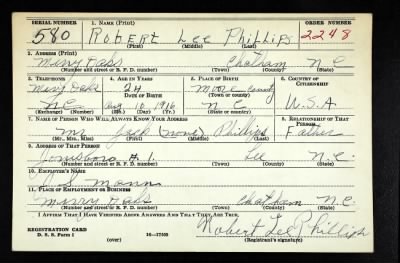 SERIAL NUMBER 1. NAME (Print) ORDER NUMBER
580 Robert Lee Phillips 2248
(First) (Middle) (Last)
2. ADDRESS (Print)
Chatham N C
(Number and street or R. F. D. number) (Town) (County) (State)
3. TELEPHONE 4. AGE IN YEARS 5. PLACE OF BIRTH 6. COUNTRY OF CITIZENSHIP
24 Moore County
DATE OF BIRTH (Town or county)
N C Aug 6 1916 N C U.S.A
(Exchange) (Number) (Mo.) (Day) (Yr.) (State or country)
7. NAME OF PERSON WHO WILL ALWAYS KNOW YOUR ADDRESS 8. RELATIONSHIP OF THAT PERSON
Mr Jack (none) Phillips Father
(Mr., Mrs., Miss) (First) (Middle) (Last)
9. ADDRESS OF THAT PERSON
Jonesboro # 1. Lee N.C.
(Number and street or R. F. D. number) (Town) (County) (State)
10. EMPLOYER'S NAME
Mann
11. PLACE OF EMPLOYMENT OR BUSINESS
Chatham N.C.
(Number and street or R. F. D. number) (Town) (County) (State)
I AFFIRM THAT I HAVE VERIFIED ABOVE ANSWERS AND THAT THEY ARE TRUE.
REGISTRATION CARD Robert Lee Phillips
D. S. S. Form 1 (over) 16—17105 (Registrant's signature)